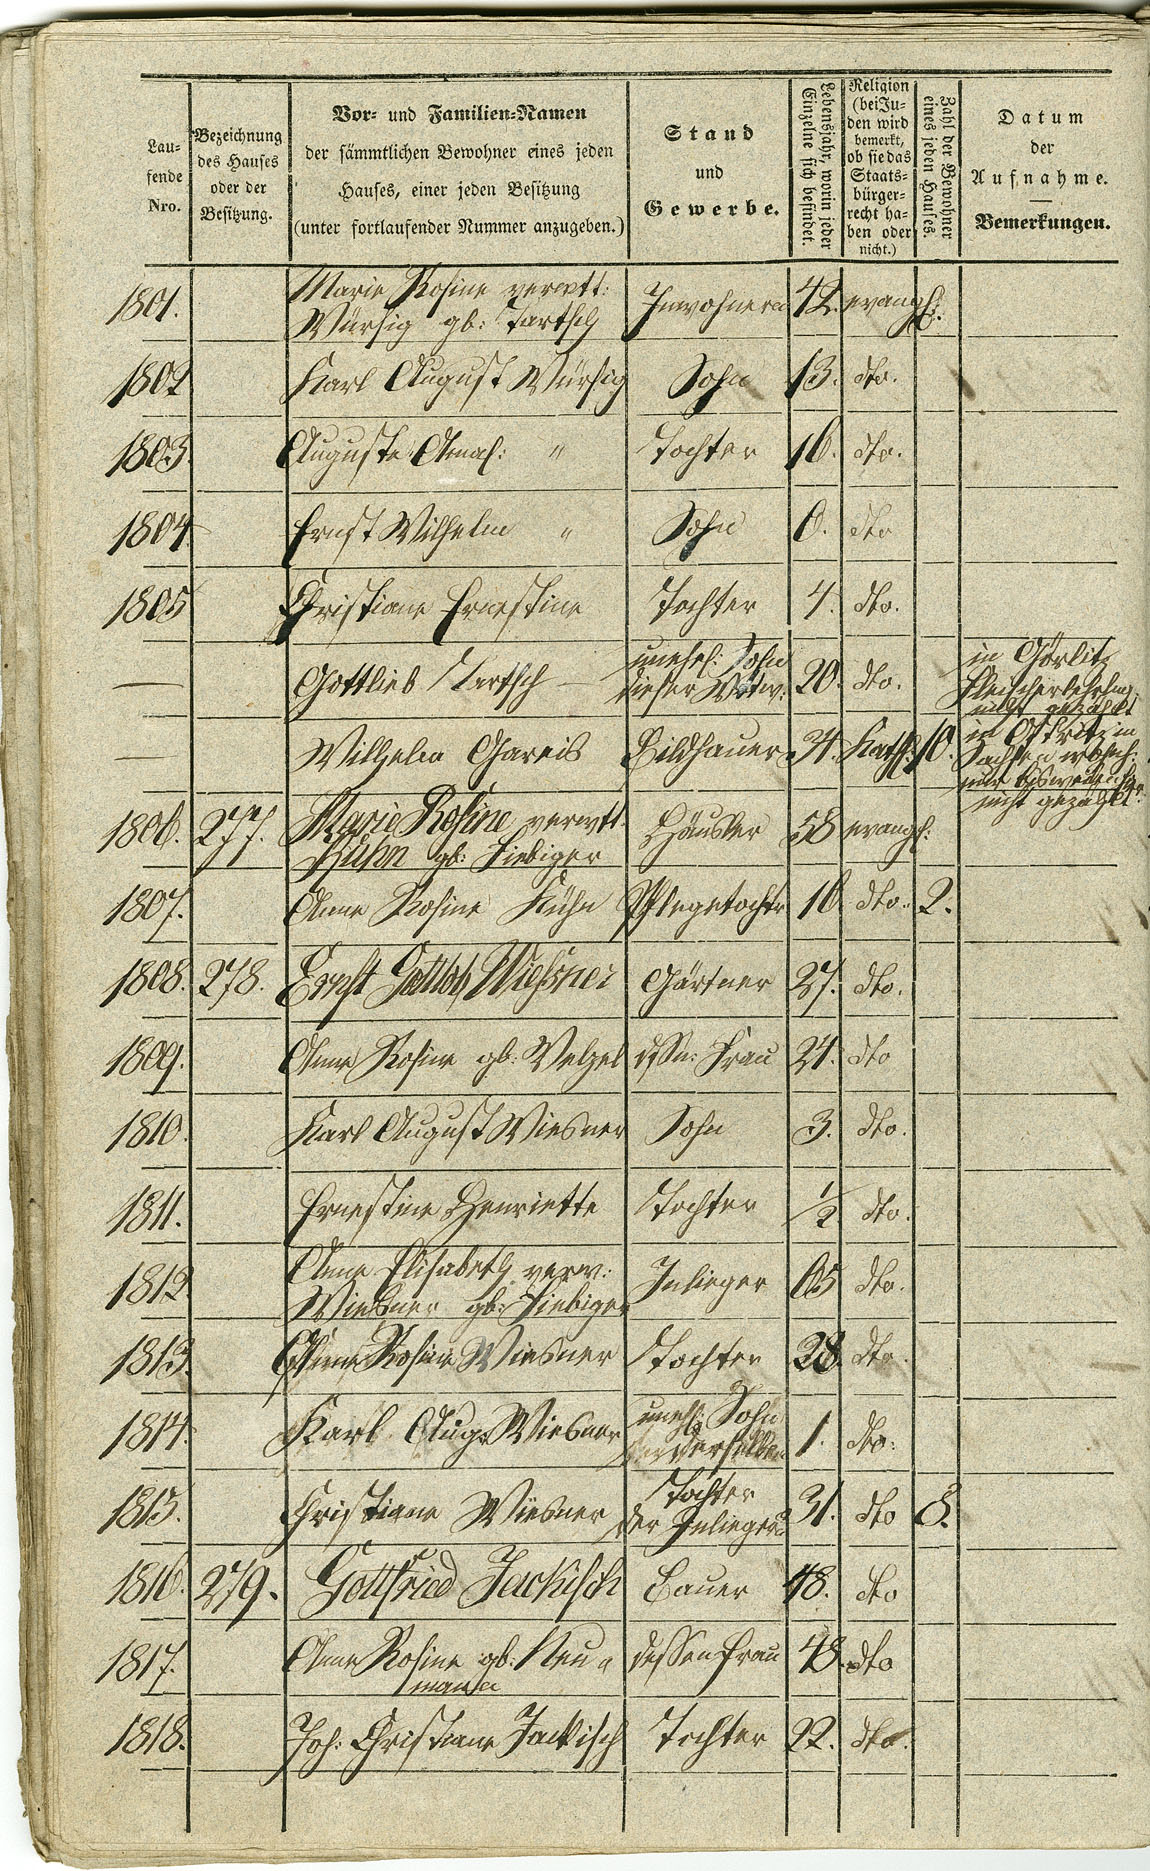 Lau-
fende
Nro.
Bezeichnung
des Hauses
oder der
Besitzung.
Vor- und Familien-Namen
der sämmtlichen Bewohner eines jeden
Hauses, einer jeden Besitzung
(unter fortlaufender Nummer anzugeben.)
Stand
und
Gewerbe.
Lebensjahr, worin jeder
Einzelne sich befindet.
Religion
(bei Ju-
den wird
bemerkt,
ob sie das
Staats-
bürger-
recht ha-
ben oder
nicht.)
Zahl der Bewohner
eines jeden Hauses.
Datum
der
Aufnahme.
Bemerkungen.
1801. Marie Rosine verwtt: Inwohnerin 42. evangl:
Würsig gb: Tartsch
1802 Karl August Würsig Sohn 13. dto.
1803. Auguste Amal: " Tochter 16. dto.
1804. Ernst Wilhelm " Sohn 6. dto
1805 Christiane Ernestine Tochter 4. dto.
— Gottlieb Tartsch — unehl: Sohn dieser Wittw: 20. dto. in Görlitz
Fleischerlehrling
nicht gezählt
— Wilhelm Gareis Bildhauer 34. Kath: 10. in Ostritz in
Sachsen
nicht gezählt.
1806. 277. Marie Rosine verwtt. Häusler 58 evangl.
Kühn gb: Fiebiger
1807. Anne Rosine Kühn Pflegetochter 16 dto. 2.
1808. 278. Ernst Gottlob Wiesner Gärtner 27. dto.
1809. Anne Rosine gb: Welzel dssn: Frau 24. dto
1810. Karl August Wiesner Sohn 3. dto.
1811. Ernestine Henriette Tochter 1/2 dto.
1812 Anne Elisabeth verw: Inlieger 65 dto.
Wiesner gb: Fiebiger
1813. Anne Rosine Wiesner Tochter 28. dto.
1814. Karl Aug. Wiesner unehl: Sohn derselben 1. dto.
1815. Christiane Wiesner Tochter der Inliegerin 31. dto 8.
1816. 279. Gottfried Jackisch Bauer 48. dto
1817. Anne Rosine gb: Neu- dessen Frau 48. dto
mann
1818. Joh: Christiane Jackisch Tochter 22. dto.